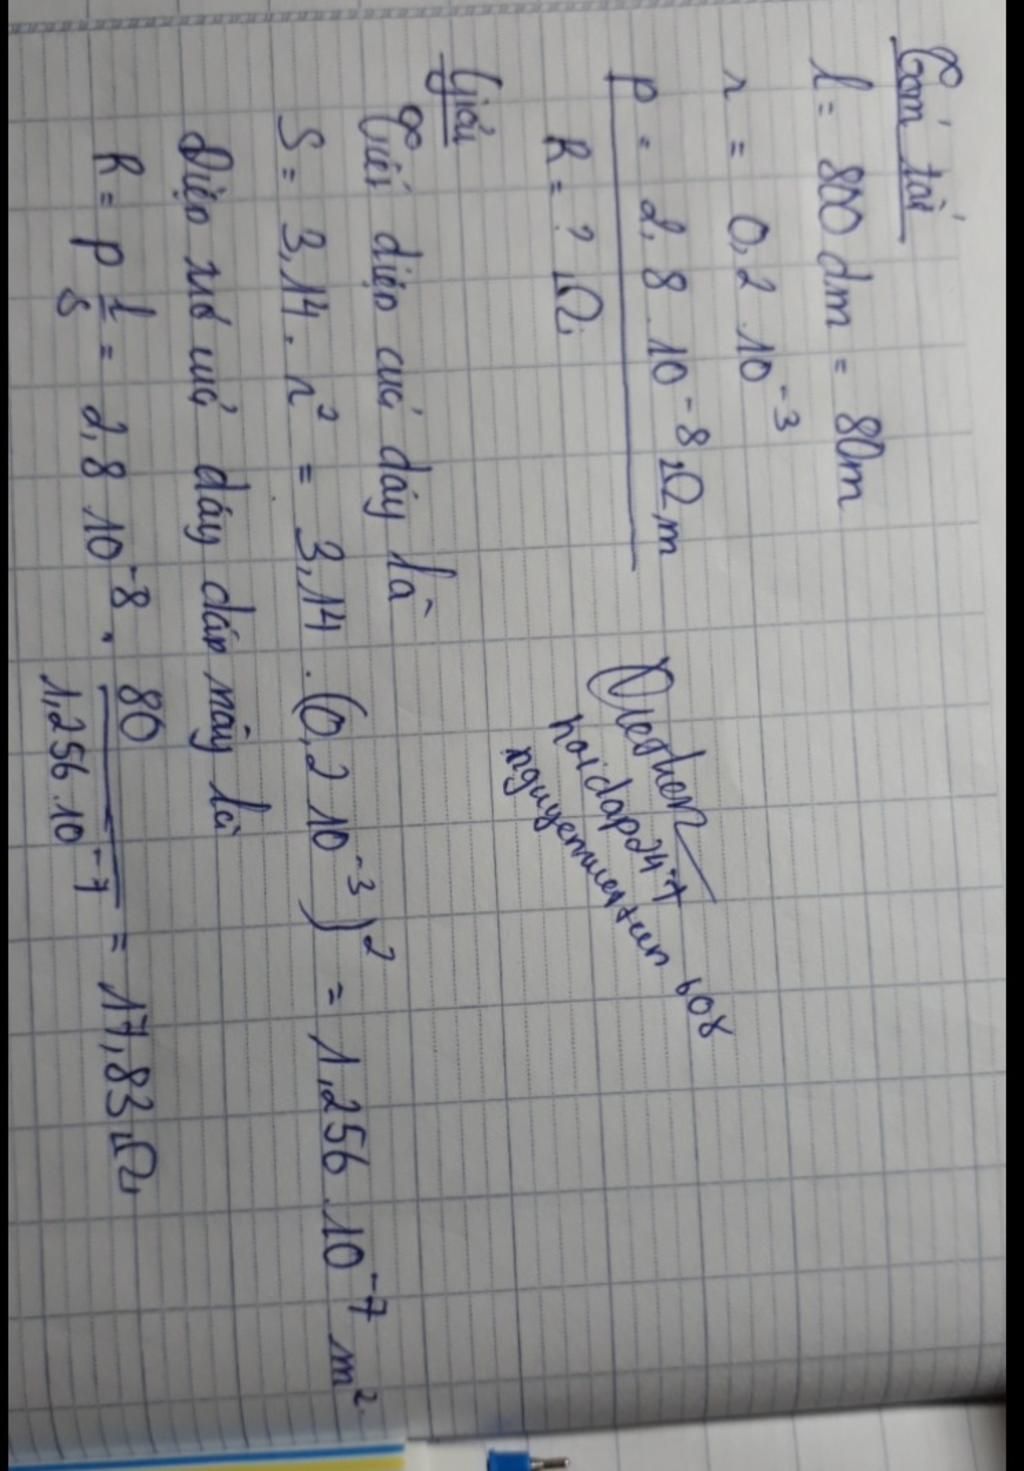 Tóm tắt
l = 800 dm = 80m
r = 0,2 10⁻³
ρ = 2,8 . 10⁻⁸ Ω m
R = ? Ω
hoidap247
nguyenvientun 608
Giải
Tiết diện của dây là
S = 3,14 . r² = 3,14 . (0,2 10⁻³)² = 1,256 . 10⁻⁷ m²
Điện trở của dây dẫn này là
R = ρ l/S = 2,8 10⁻⁸ . 80/1,256.10⁻⁷ = 17,83 Ω